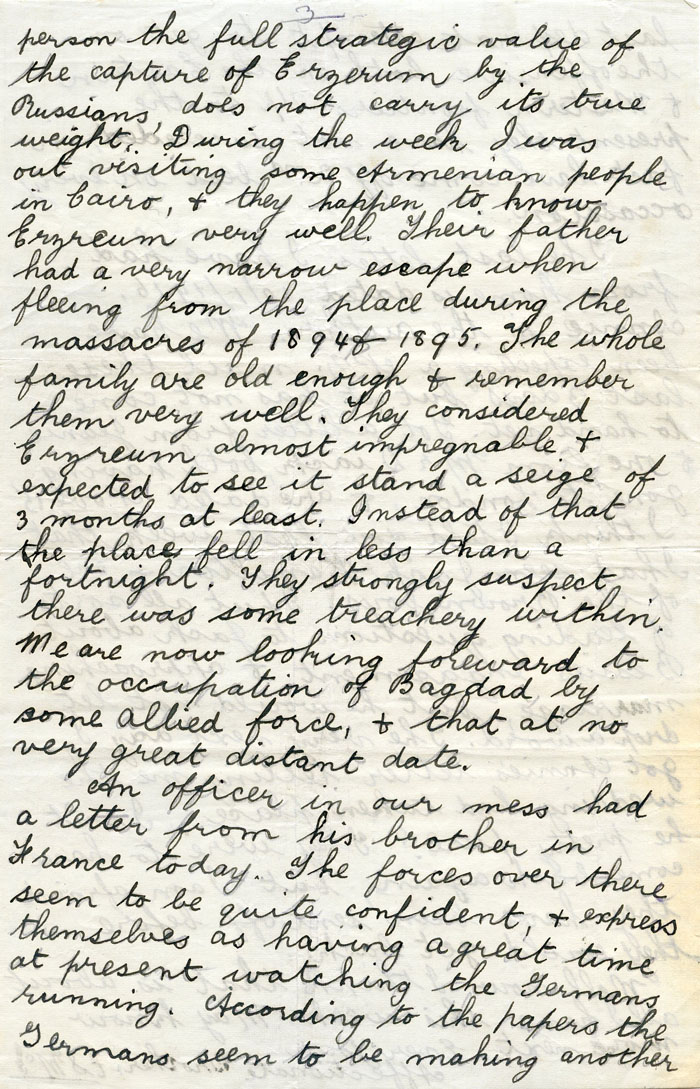 3
person the full strategic value of
the capture of Erzerum by the
Russians, does not carry its true
weight. During the week I was
out visiting some Armenian people
in Cairo, & they happen to know
Erzreum very well. Their father
had a very narrow escape when
fleeing from the place during the
massacres of 1894 & 1895. The whole
family are old enough & remember
them very well. They considered
Erzreum almost impregnable &
expected to see it stand a seige of
3 months at least. Instead of that
the place fell in less than a
fortnight. They strongly suspect
there was some treachery within.
We are now looking foreward to
the occupation of Bagdad by
some allied force, & that at no
very great distant date.
An officer in our mess had
a letter from his brother in
France today. The forces over there
seem to be quite confident, & express
themselves as having a great time
at present watching the Germans
running. According to the papers the
Germans seem to be making another